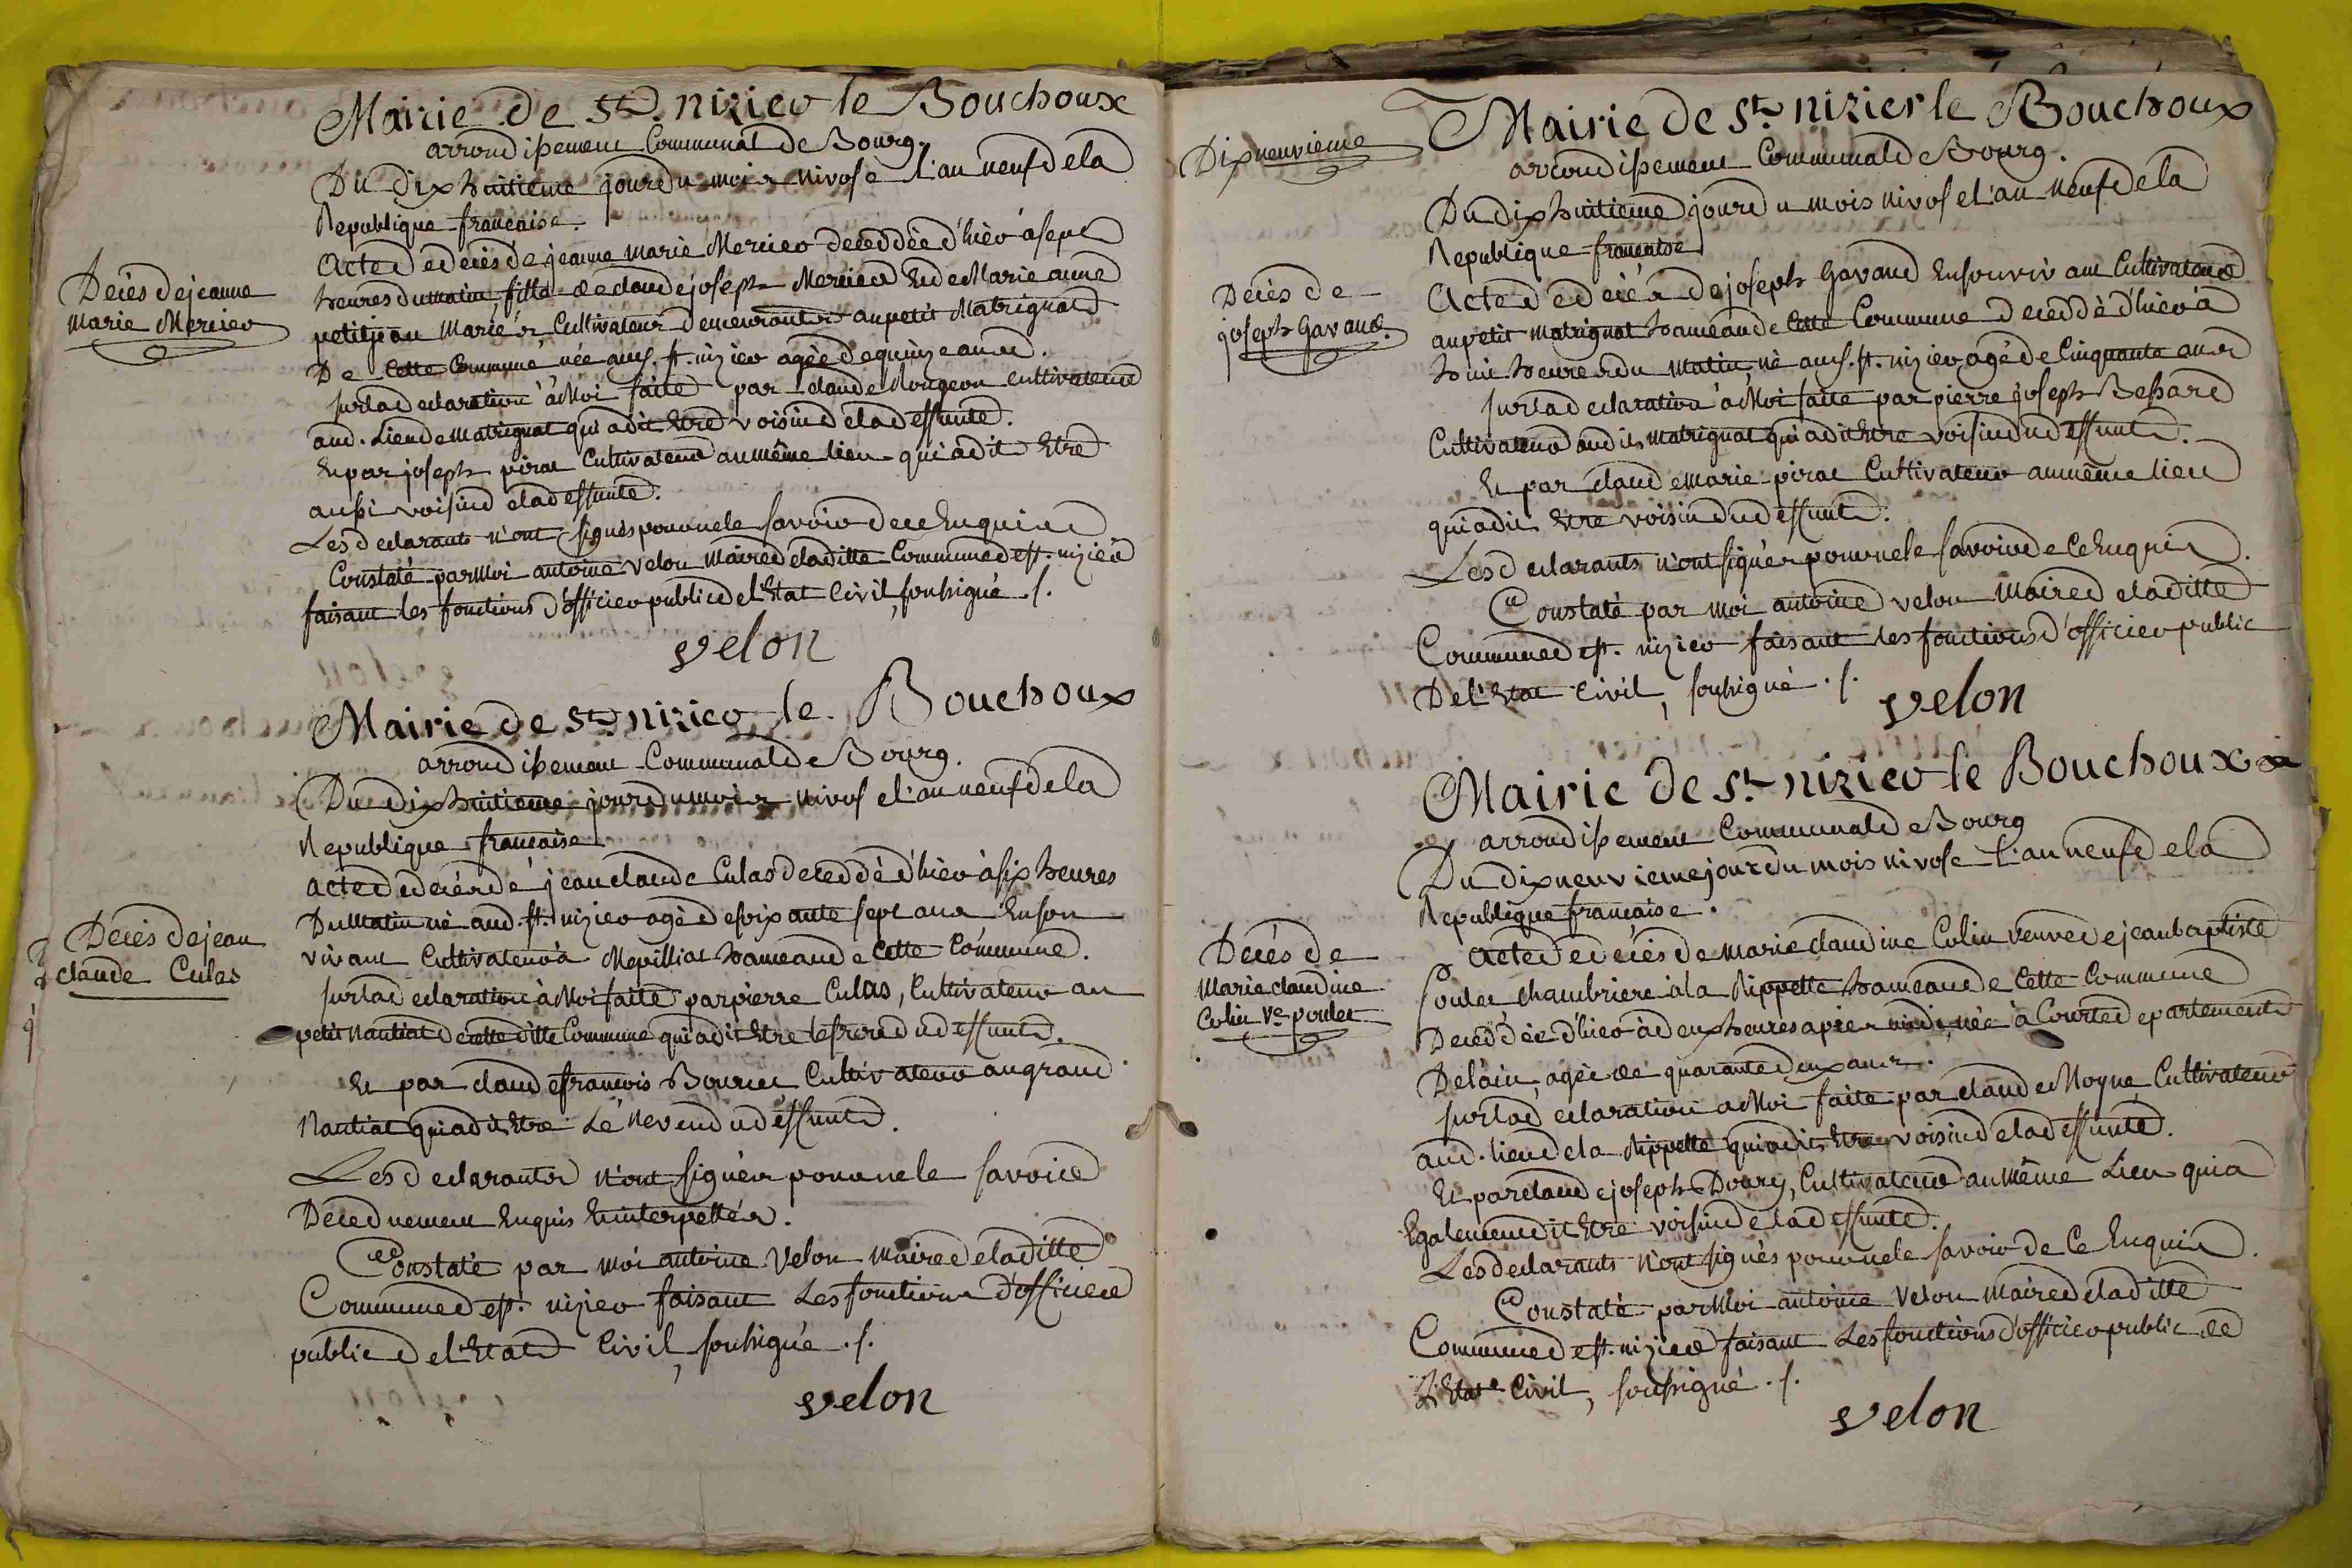 Mairie de St. nizier le Bouchoux
arrondissement Communal de Bourg.
Du dix huitieme jour du mois nivose l'an neuf de la
Republique française.
Acte de decés de jeanne marie Mercier deceddée d'hier à sept
heures du matin, fille de claude joseph Mercier Et de Marie anne
petitjean Mariés Cultivateurs demeurants au petit Matrignat
De Cette Commune née aud. st. nizier agée de quinze ans.
sur la declaration à Moi faite par claude Rongeon cultivateur
aud. Lieu de Matrignat qui a dit Etre voisin de la deffunte.
Et par joseph pirat Cultivateur au même lieu qui a dit Etre
aussi voisin de la deffunte.
Les declarants n'ont signés pour ne le savoir de ce Enquis
Constaté par Moi antoine velon Maire de la ditte Commune de st. nizier
faisant les fonctions d'officier public de l'Etat Civil, soussigné ./.
velon
Decés de jeanne
marie Mercier
Mairie de St. nizier le Bouchoux
arrondissement Communal de Bourg.
Du dix huitieme jour du mois nivose l'an neuf de la
Republique française
acte de decés de jean claude Culas deceddé d'hier à six heures
Du Matin né aud. st. nizier agé de soixante sept ans En son
vivant Cultivateur à Mepilliat hameau de Cette Commune.
sur la declaration à Moi faite par pierre Culas, Cultivateur au
petit Nantiat de cette ditte Commune qui a dit Etre le frere du deffunt.
Et par claude francois Bourcet Cultivateur au grand
Nantiat qui a dit Etre Le neveu du deffunt.
Les declarants n'ont signés pour ne le savoir
De ce duement Enquis Et interpettés.
Constaté par moi antoine Velon Maire de la ditte
Commune de st. nizier faisant Les fonctions d'officier
public de l'Etat Civil, soussigné ./.
velon
Decés de jean
claude Culas
Dix neuvieme
Mairie de St. nizier le Bouchoux
arrondissement Communal de Bourg.
Du dix huitieme jour du mois nivose l'an neuf de la
Republique française
Acte de decés de joseph Gavand En son vivant Cultivateur
au petit matrignat hameau de Cette Commune deceddé d'hier à
huit heures du Matin, né aud. st. nizier agé de Cinquante ans
sur la declaration à Moi faite par pierre joseph Bessard
Cultivateur aud. Matrignat qui a dit Etre voisin du deffunt.
Et par claude Marie pirat Cultivateur au même lieu
qui a dit Etre voisin du deffunt.
Les declarants n'ont signés pour ne le savoir de Ce Enquis.
Constaté par moi antoine velon Maire de la ditte
Commune de st. nizier faisant les fonctions d'officier public
De l'Etat Civil, soussigné ./.
velon
Decés de
joseph Gavand.
Mairie de St. nizier le Bouchoux
arrondissement Communal de Bourg
Du dix neuvieme jour du mois nivose l'an neuf de la
Republique française.
Acte de decés de Marie claudine Colin veuve de jean baptiste
Poulet chambriere à la Rippette hameau de Cette Commune
Deceddée d'hier à deux heures après midi, née à Courte departement
De l'ain, agée de quarante deux ans.
sur la declaration a Moi faite par claude Moyne Cultivateur
aud. lieu de la Rippette qui a dit Etre voisin de la deffunte.
Et par claude joseph Doury, Cultivateur au Même Lieu qui a
Egalement dit Etre voisin de la deffunte.
Les declarants n'ont signés pour ne le savoir de Ce Enquis.
Constaté par Moi antoine Velon Maire de la ditte
Commune de st. nizier faisant Les fonctions d'officier public de
L'Etat Civil, soussigné ./.
velon
Decés de
Marie claudine
Colin Ve. poulet